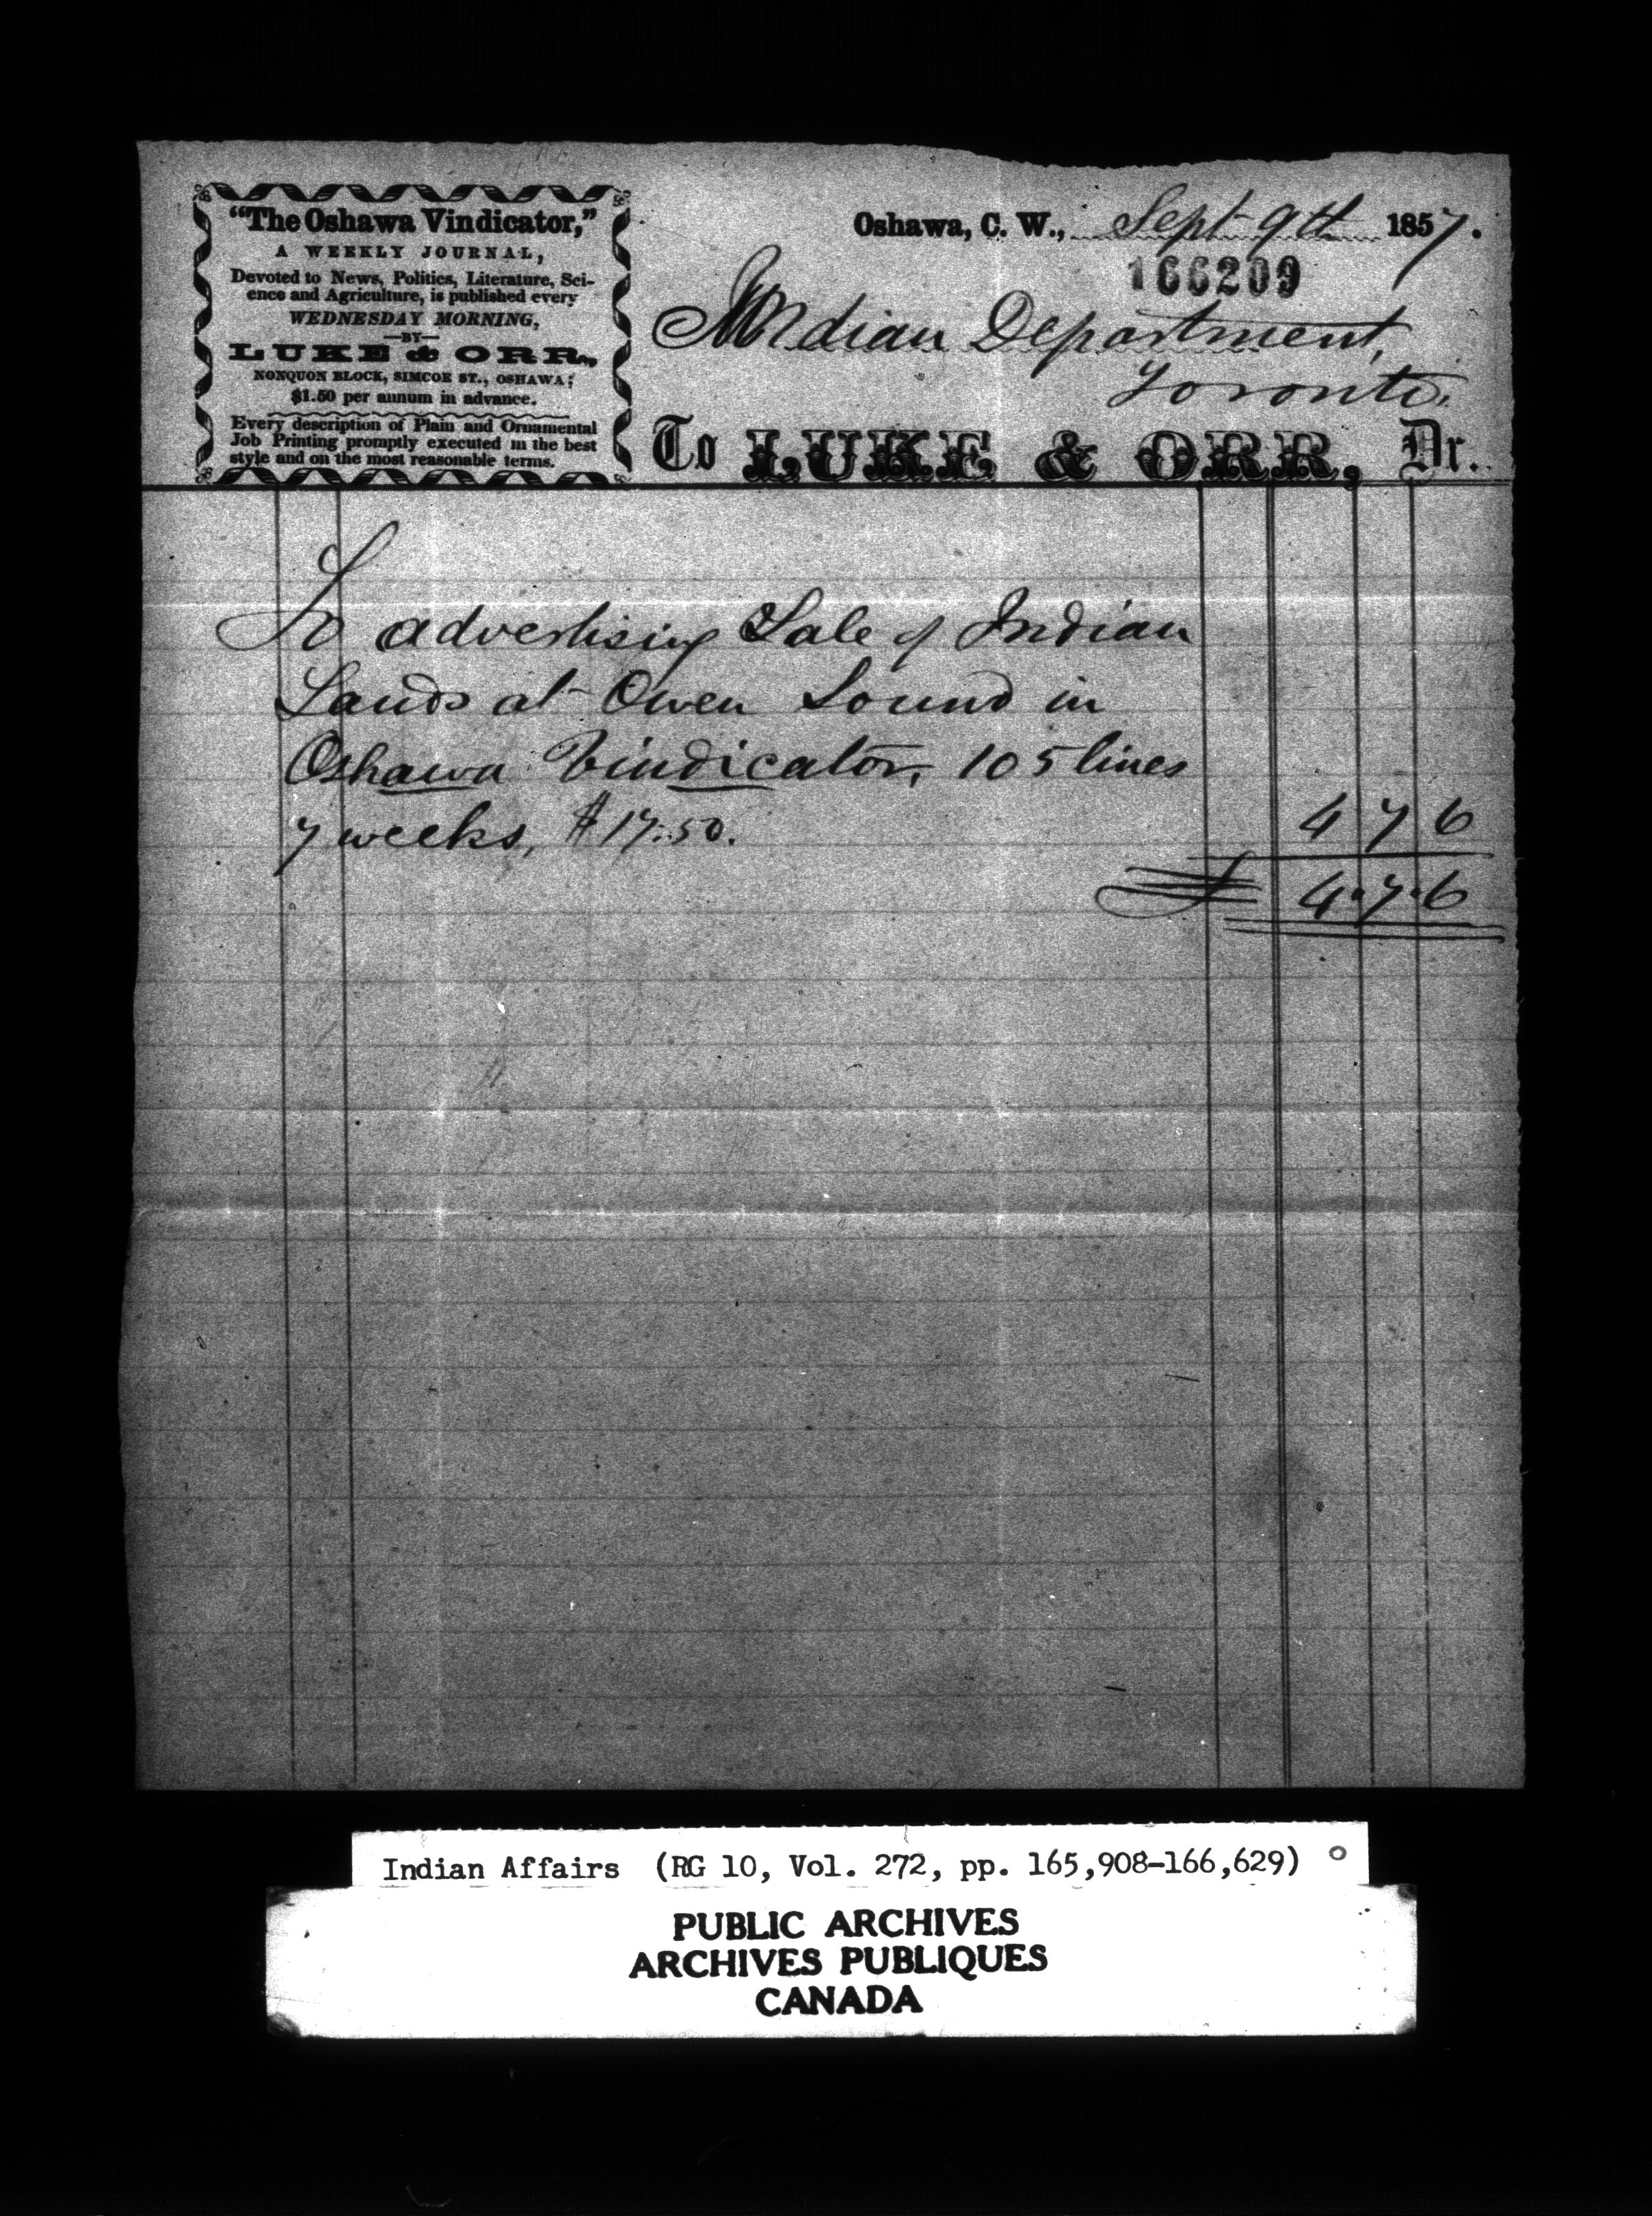 "The Oshawa Vindicator,"
A WEEKLY JOURNAL,
Devoted to News, Politics, Literature, Sci-
ence and Agriculture, is published every
WEDNESDAY MORNING,
—BY—
LUKE & ORR,
NONQUON BLOCK, SIMCOE ST., OSHAWA;
$1.50 per annum in advance.
Every description of Plain and Ornamental
Job Printing promptly executed in the best
style and on the most reasonable terms.
Oshawa, C. W., Sept 9th 1857.
166209
Indian Department,
Toronto.
To LUKE & ORR, Dr.
To advertising Sale of Indian
Lands at Owen Sound in
Oshawa Vindicator, 105 lines
7 weeks, $17.50. 4 7 6
£ 4.7.6
Indian Affairs (RG 10, Vol. 272, pp. 165,908-166,629)
PUBLIC ARCHIVES
ARCHIVES PUBLIQUES
CANADA